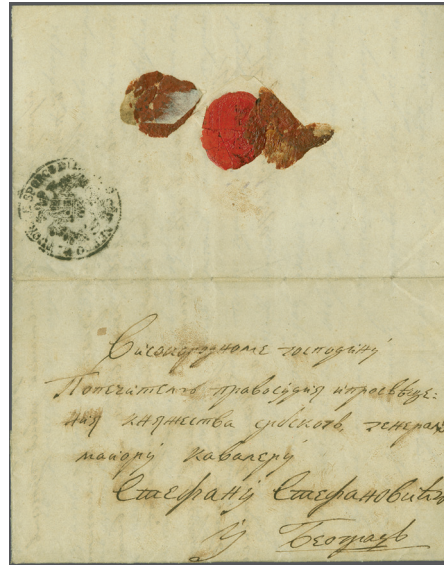 Високородноме господину
Попечителю правосудия и просвѣще:
ния княжества србскогъ, генерал
маіору кавалеру
Стефану Стефановић
у Београдъ